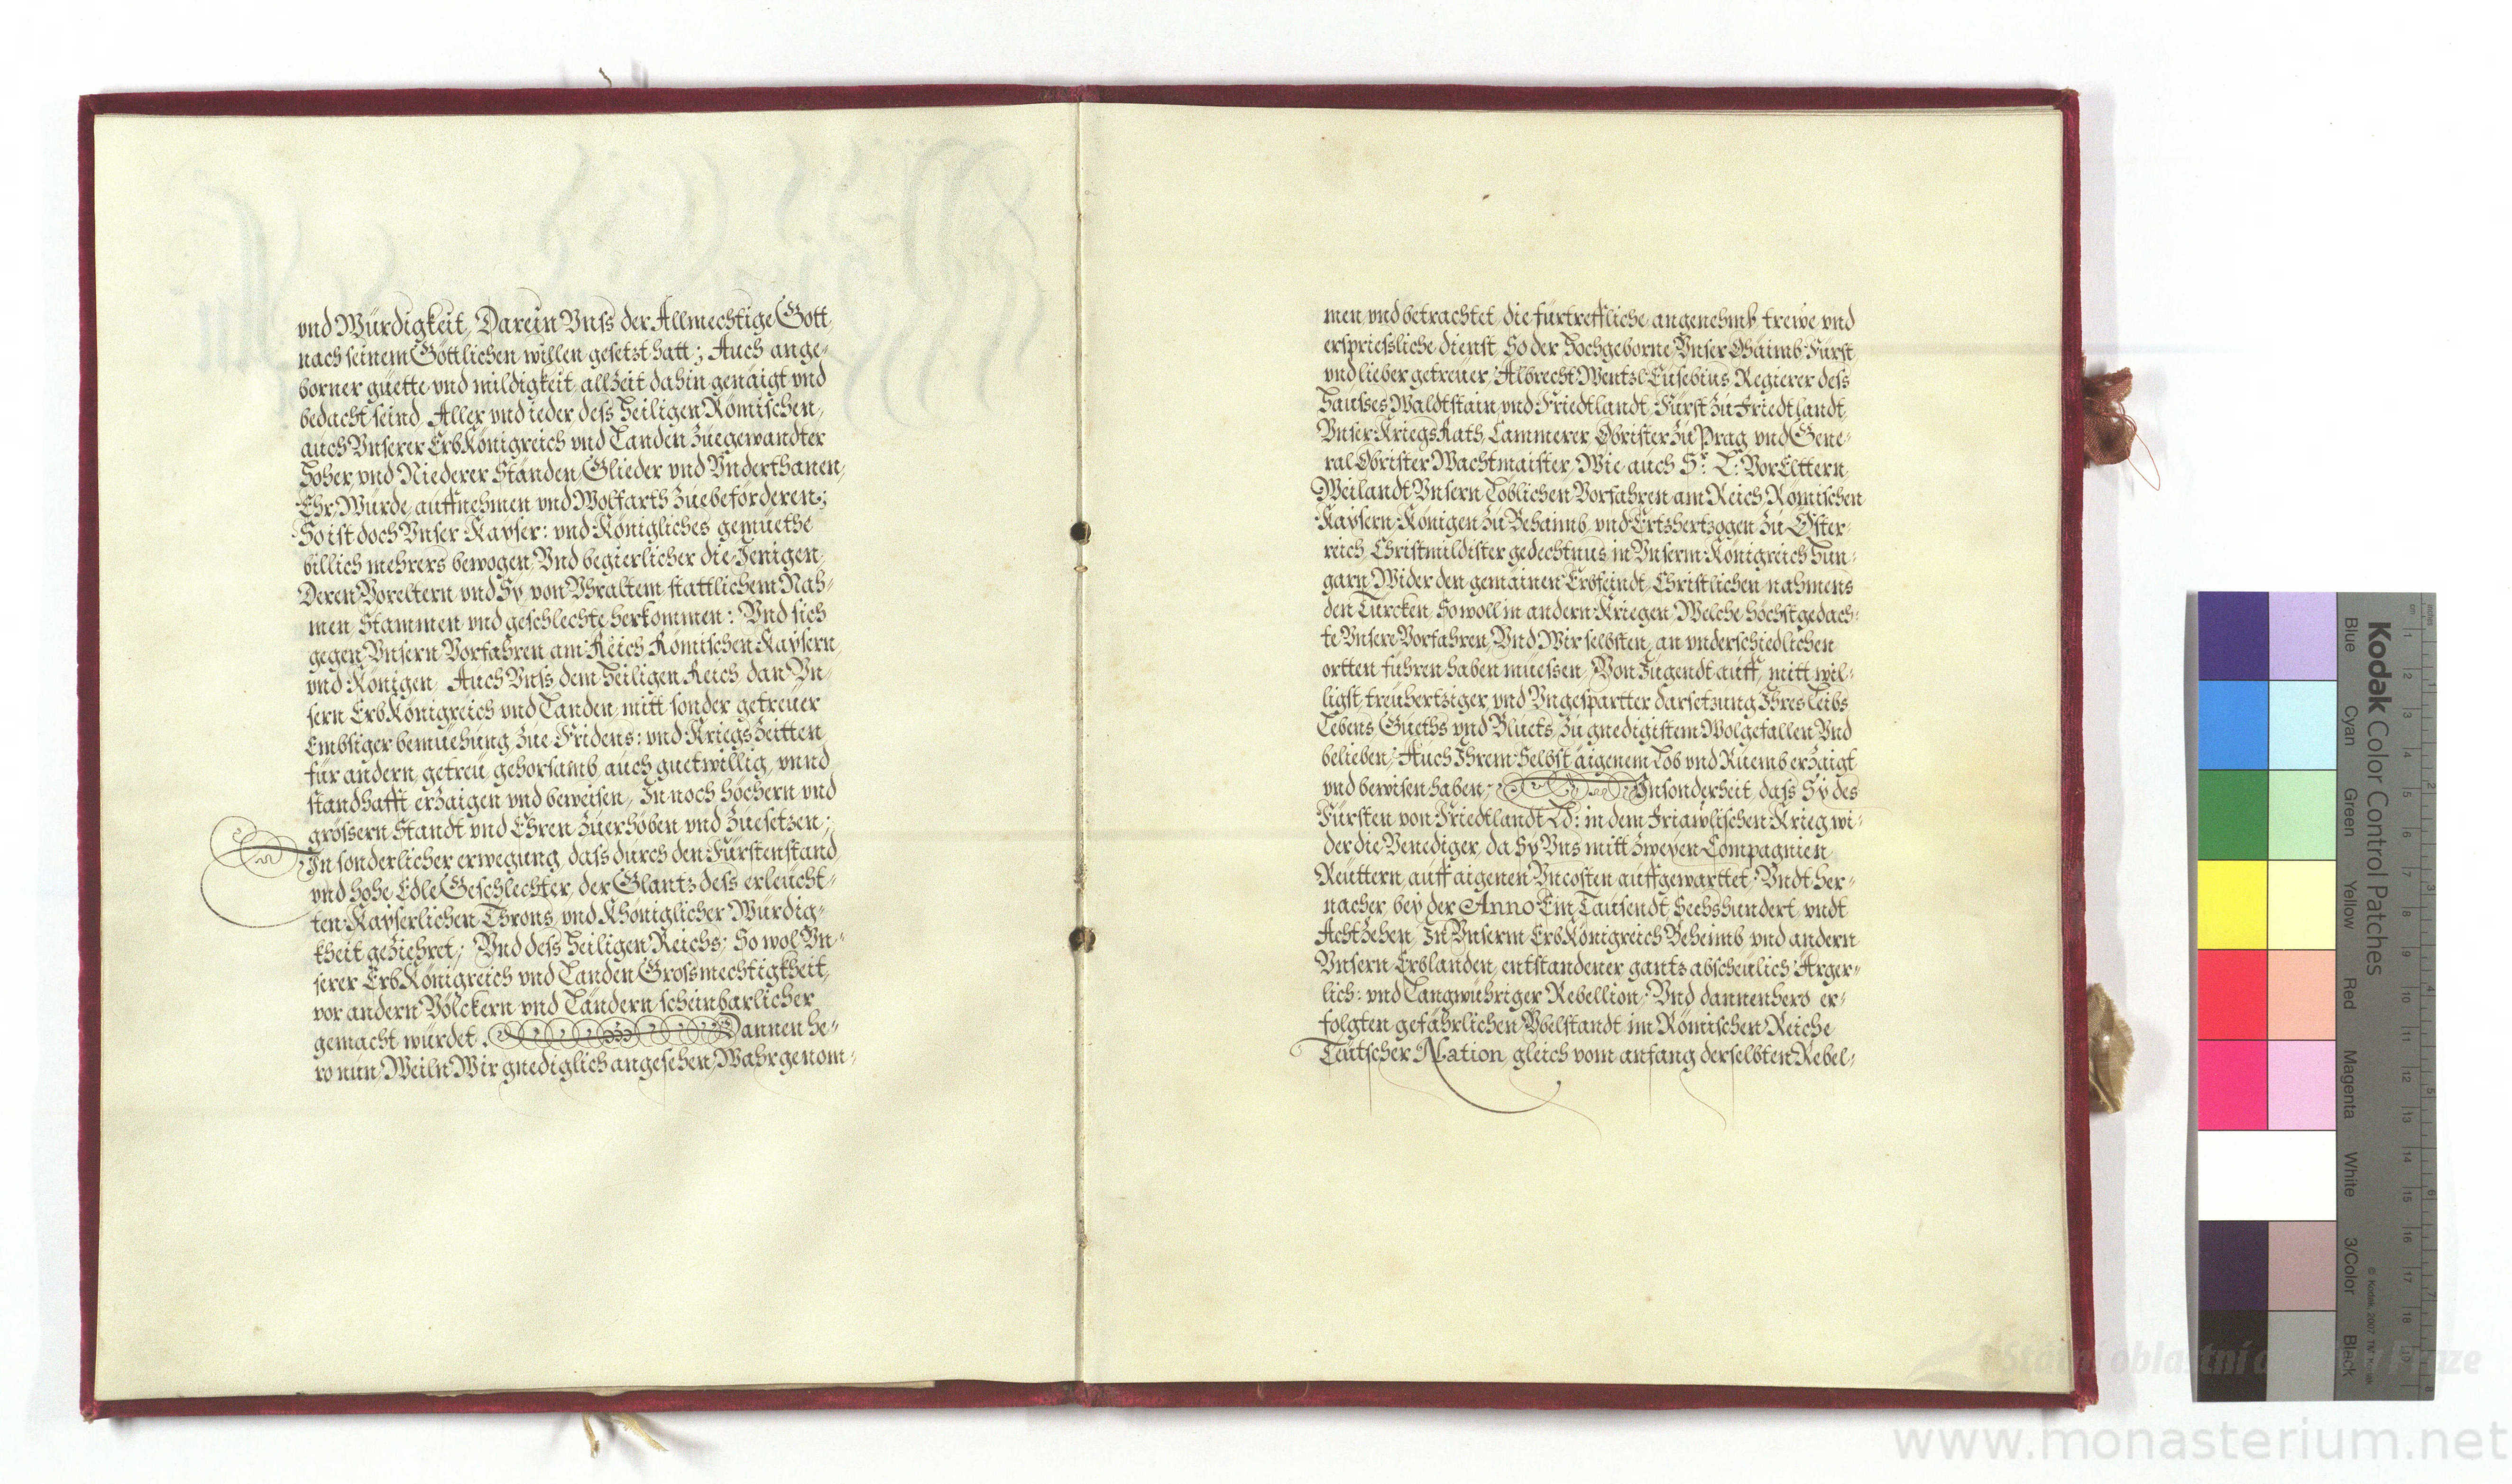 vnd Würdigkeit, Darein Vnss der Allmechtige Gott,
nach seinem Göttlichen willen gesetzt hatt; Auch ange-
borner güette vnd mildigkeit, allzeit dahin genäigt vnd
bedacht seind, Aller vnd ieder dess Heiligen Römischen,
auch Vnserer ErbKönigreich vnd Landen zuegewandter
Hoher, vnd Niederer Ständen, Glieder vnd Vnderthanen,
Ehr, Würde, auffnehmen vnd Wolfarth zuebeförderen;
So ist doch Vnser Kayser: vnd Königliches gemüethe
billich mehrers bewogen, Vnd begierlicher die Jenigen,
Deren Voreltern vnd Sÿ, von Vhraltem stattlichem Nah-
men, Stammen vnd geschlechte herkommen: Vnd sich
gegen Vnsern Vorfahren am Reich, Römischen Kaysern,
vnd Königen, Auch Vnss dem Heiligen Reich, dan Vn-
sern ErbKönigreich vnd Landen, mitt sonder getreüer
Embsiger bemüehung, zue Fridens: vnd Kriegszeitten,
für andern, getreü, gehorsamb, auch guetwillig, vnnd
standhafft erzaigen vnd beweisen, In noch höchern vnd
grössern Standt vnd Ehren zuerhöben vnd zuesetzen;
In sonderlicher erwegung, dass durch den Fürstenstand,
vnd hohe Edle Geschlechter, der Glantz dess erleücht-
ten Kayserlichen Throns, vnd Khöniglicher Würdig-
kheit geziehret; Vnd dess Heiligen Reichs, So wol Vn-
serer ErbKönigreich vnd Landen Grossmechtigkheit,
vor andern Völckern vnd Ländern scheinbarlicher
gemacht würdet. Dannenhe-
ro nun, Weiln Wir gnediglich angesehen, Wahrgenom-
men, vnd betrachtet, die fürtreffliche, angenehmb, trewe vnd
erspriessliche dienst, So der Hochgeborne Vnser Ohaimb, Fürst,
vnd lieber getreüer, Albrecht Wentzl Eusebius, Regierer dess
Hausses Waldtstain, vnd Friedtlandt, Fürst zu Friedtlandt,
Vnser KriegsRath, Cammerer, Obrister zu Prag, vnd Gene-
ral Obrister Wachtmaister, Wie auch Sr. L: VorElttern,
Weilandt Vnsern Löblichen Vorfahren am Reich, Römischen
Kaysern, Königen zu Behaimb, vnd Ertzhertzogen zu Öster-
reich, Christmildister gedechtnus, in Vnserm Königreich Hun-
garn, Wider den gemainen Erbfeindt, Christlichen nahmens
den Türcken, Sowoll in andern Kriegen, Welche höchstgedach-
te Vnsere Vorfahren, Vnd Wir selbsten, an vnderschiedlichen
ortten führen haben müessen, Von Jugendt auff, mitt wil-
ligst, treühertziger, vnd Vngespartter darsetzung Ihres Leibs,
Lebens, Gueths vnd Bluets, zu gnedigistem Wolgefallen Vnd
belieben, Auch Ihrem Selbst aigenem Lob vnd Ruemb erzaigt
vnd bewisen haben; Insonderheit, dass Sÿ des
Fürsten von Friedtlandt Ld: in dem Friawlischen Krieg wi-
der die Venediger, da Sÿ Vns mitt zweyen Compagnien
Reüttern, auff aigenen Vncosten auffgewarttet, Vndt her-
nacher, beÿ der Anno Ein Tausendt, Sechshundert, vndt
Achtzehen, In Vnserm ErbKönigreich Beheimb, vnd andern
Vnsern Erblanden, entstandener gantz abscheülich Ärger-
lich: vnd Langwühriger Rebellion, Vnd dannenhero er-
folgten gefährlichen Vbelstandt im Römischen Reiche
Teütscher Nation, gleich vom anfang derselbten Rebel-
Kodak Color Control Patches
Blue Cyan Green Yellow Red Magenta White 3/Color Black
© Kodak, 2007
www.monasterium.net